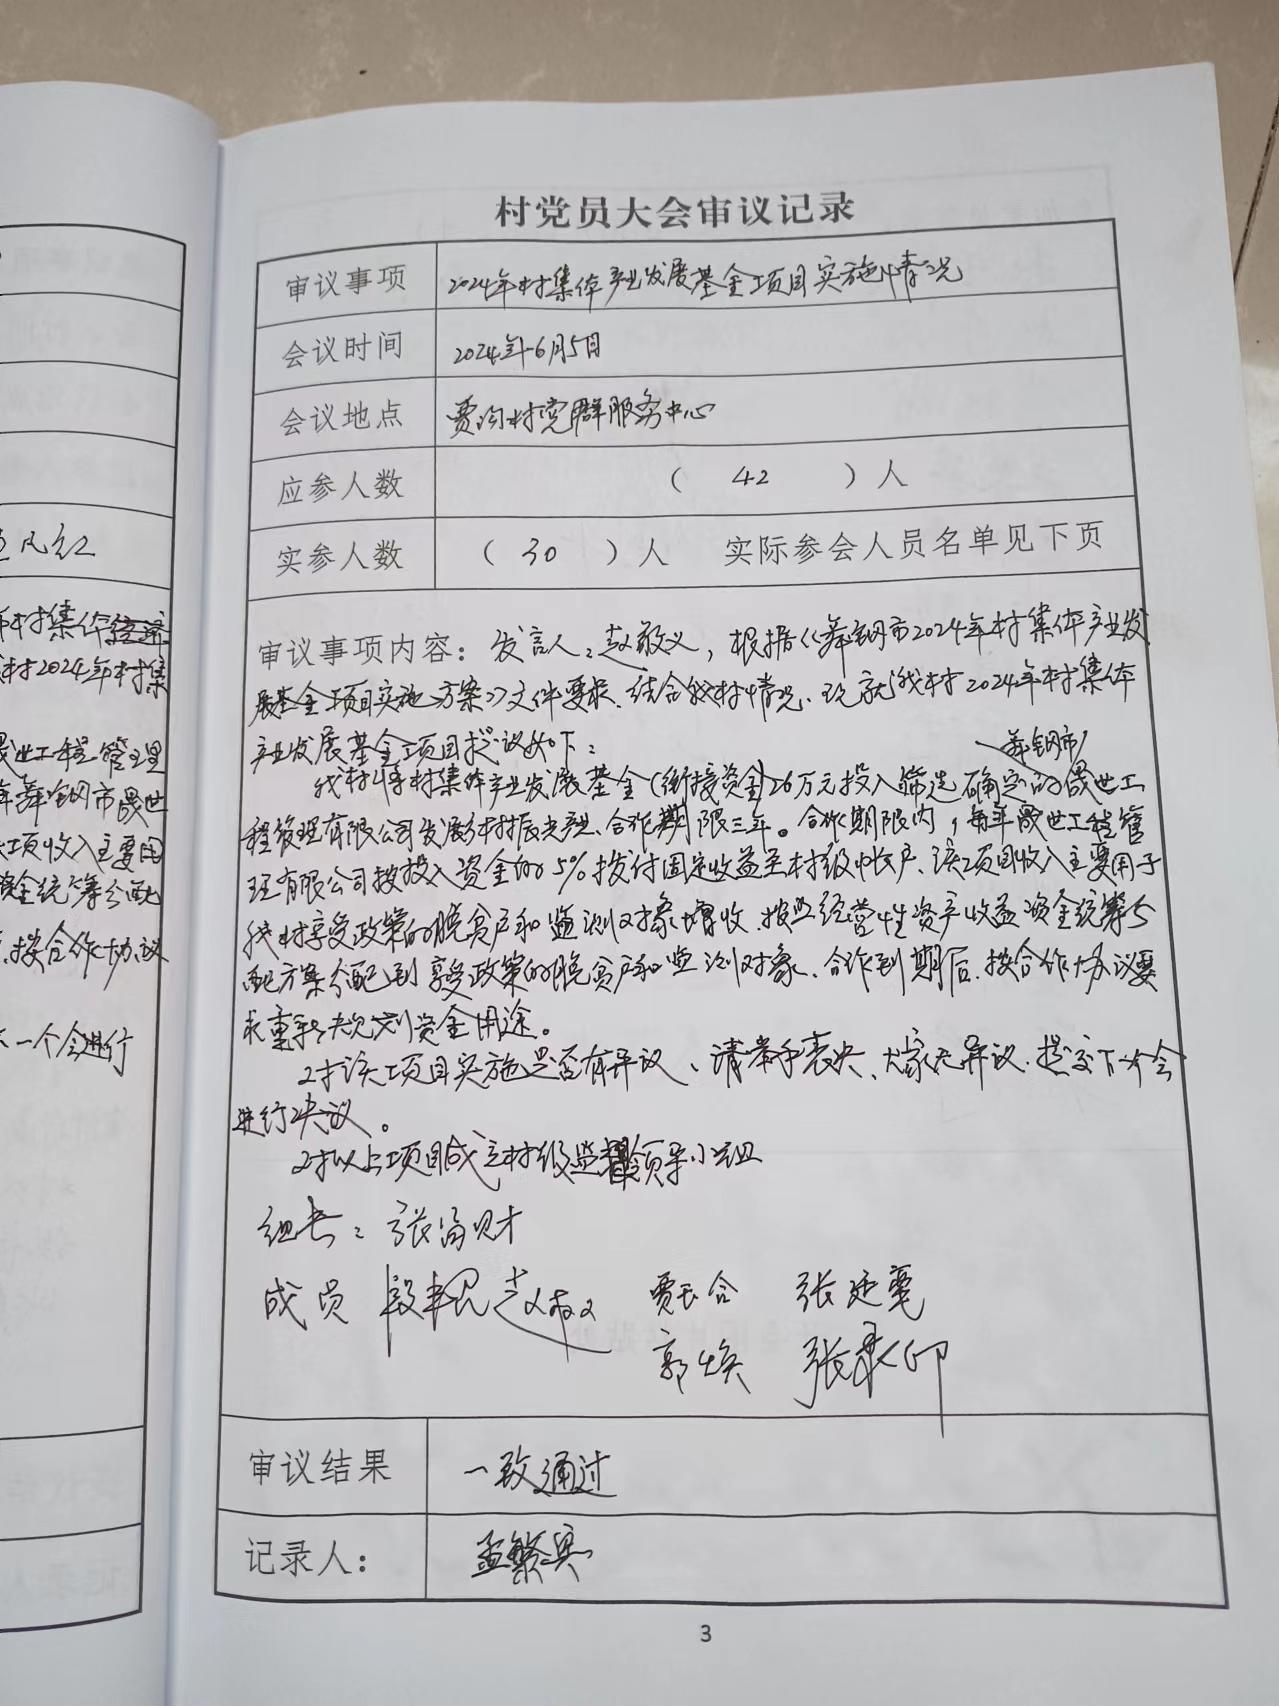 村党员大会审议记录
审议事项 2024年村集体产业发展基金项目实施情况
会议时间 2024年6月5日
会议地点 贾沟村党群服务中心
应参人数 （ 42 ）人
实参人数 （ 30 ）人 实际参会人员名单见下页
审议事项内容：发言人：赵敬义，根据《舞钢市2024年村集体产业发
展基金项目实施方案》文件要求、结合我村情况、现就我村2024年村集体
产业发展基金项目提议如下：
舞钢市
我村将村集体产业发展基金（衔接资金）26万元投入筛选确定的晟世工
程管理有限公司发展乡村振兴产业、合作期限三年。合作期限内，每年晟世工程管
理有限公司按投入资金的5%拨付固定收益至村级帐户、该项目收入主要用于
我村享受政策的脱贫户和监测对象增收、按照经营性资产收益资金统筹分
配方案分配到享受政策的脱贫户和监测对象、合作到期后、按合作协议要
求重新决定规划资金用途。
对该项目实施是否有异议、请举手表决、大家无异议、提交下一个会
进行决议。
对以上项目成立村级监督领导小组
组长：张海财
成员 段丰民 赵敬义 贾长合 张延蒐
郭焕 张录仰
审议结果 一致通过
记录人： 孟繁兵
3
凤红
村集体经济
村2024年村集
晟世工程管理
舞钢市晟世
项收入主要用
资金统筹分配
、按合作协议
一个会进行